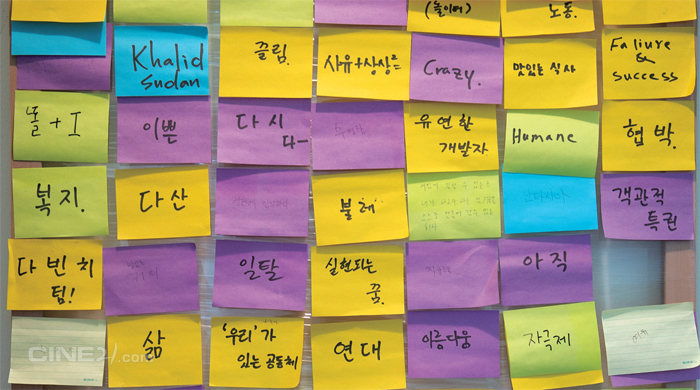 (놀이여)
노동.
Khalid
Sudan
끌림.
사유+상상²=
Crazy.
맛있는 식사
Faliure
&
Success
돌+I
이쁜
다시
다ㅡ
유연한
개발자
Humane
협박.
복지.
다산
불혜
객관적
특권
다빈치
텀!
일탈
실현되는
꿈.
아직
삶
'우리'가
있는 공동체
연대
아름다움
자극제
CINE21.com